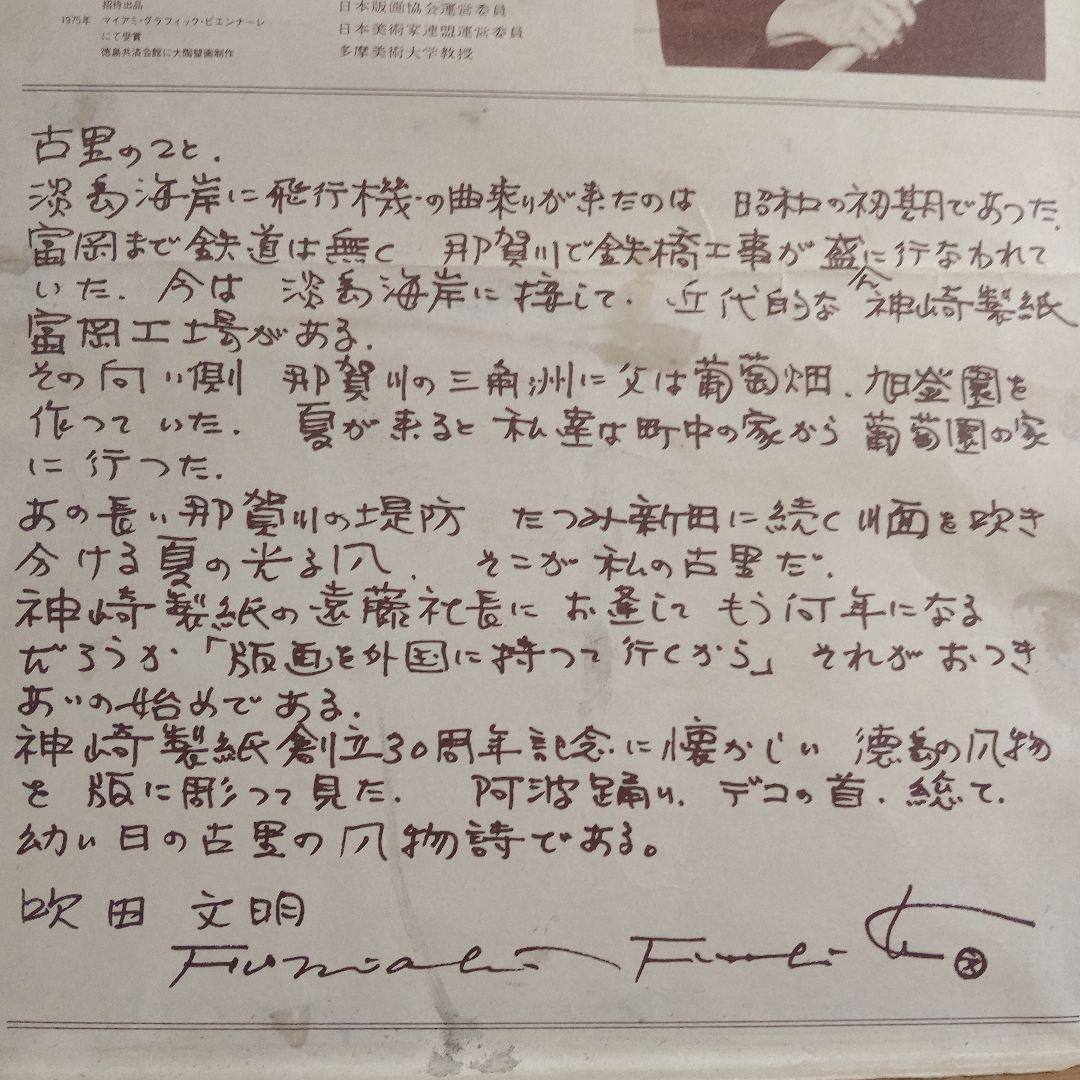 招待出品
1975年 マイアミ・グラフィック・ビエンナーレ
にて受賞
徳島共済会館に大陶壁画制作
日本版画協会運営委員
日本美術家連盟運営委員
多摩美術大学教授
古里のこと.
淡島海岸に飛行機の曲乗りが来たのは 昭和の初期であった.
富岡まで鉄道は無く 那賀川で鉄橋工事が盛んに行なわれて
いた. 今は 淡島海岸に接して. 近代的な神崎製紙
富岡工場がある.
その向い側 那賀川の三角洲に父は葡萄畑、旭登園を
作つていた. 夏が来ると私達は町中の家から葡萄園の家
に行つた.
あの長い那賀川の堤防 たつみ新田に続く川面を吹き
分ける夏の光る风. そこが私の古里だ.
神崎製紙の遠藤社長にお逢して もう何年になる
だろうか「版画を外国に持つて行くから」それがおつき
あいの始めである.
神崎製紙創立30周年記念に懐かしい 徳島の风物
を版に彫つて見た. 阿波踊り. デコの首. 総て.
幼い日の古里の风物詩である。
吹田 文明
Fumiaki Fukita